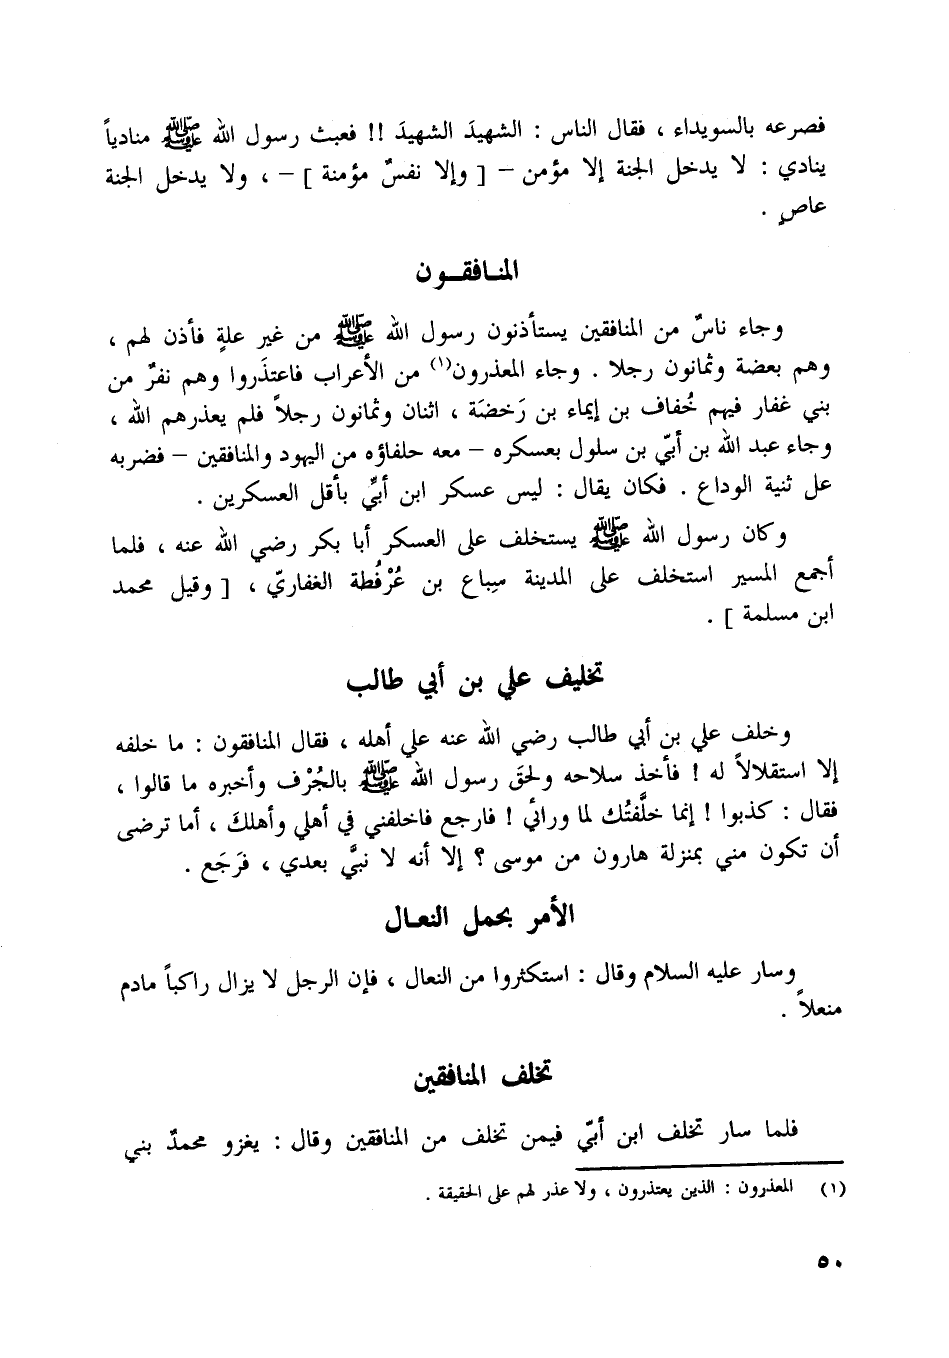 فصرعه بالسويداء ، فقال الناس : الشهيدَ الشهيدَ !! فعبث رسول الله ﷺ منادياً
ينادي : لا يدخل الجنة إلا مؤمن – [ وإلا نفسٌ مؤمنة ] – ، ولا يدخل الجنة
عاصٍ .
المنـافقـون
وجاء ناسٌ من المنافقين يستأذنون رسول الله ﷺ من غير علةٍ فأذن لهم ،
وهم بعضة وثمانون رجلا . وجاء المعذرون(١) من الأعراب فاعتذَروا وهم نفرٌ من
بني غفار فيهم خُفاف بن إيماء بن رَخضَة ، اثنان وثمانون رجلاً فلم يعذرهم الله ،
وجاء عبد الله بن أبيّ بن سلول بعسكره – معه حلفاؤه من اليهود والمنافقين – فضربه
عل ثنية الوداع . فكان يقال : ليس عسكر ابن أبيٍّ بأقل العسكرين .
وكان رسول الله ﷺ يستخلف على العسكر أبا بكر رضي الله عنه ، فلما
أجمع المسير استخلف على المدينة سِباع بن عُرْفُطة الغفاريّ ، [ وقيل محمد
ابن مسلمة ] .
تخليف علي بن أبي طالب
وخلف علي بن أبي طالب رضي الله عنه علي أهله ، فقال المنافقون : ما خلفه
إلا استقلالاً له ! فأخذ سلاحه ولحقَ رسول الله ﷺ بالجُرْف وأخبره ما قالوا ،
فقال : كذبوا ! إنما خلَّفتُك لما ورائي ! فارجع فاخلفني في أهلي وأهلكَ ، أما ترضى
أن تكون مني بمنزلة هارون من موسى ؟ إلا أنه لا نبيَّ بعدي ، فرَجَع .
الأمر بحمل النعـال
وسار عليه السلام وقال : استكثروا من النعال ، فإن الرجل لا يزال راكباً مادم
منعلاً .
تخلف المنافقين
فلما سار تخلف ابن أبيّ فيمن تخلف من المنافقين وقال : يغزو محمدٌ بني
(١) المعذرون : الذين يعتذرون ، ولا عذر لهم على الحقيقة .
٥٠